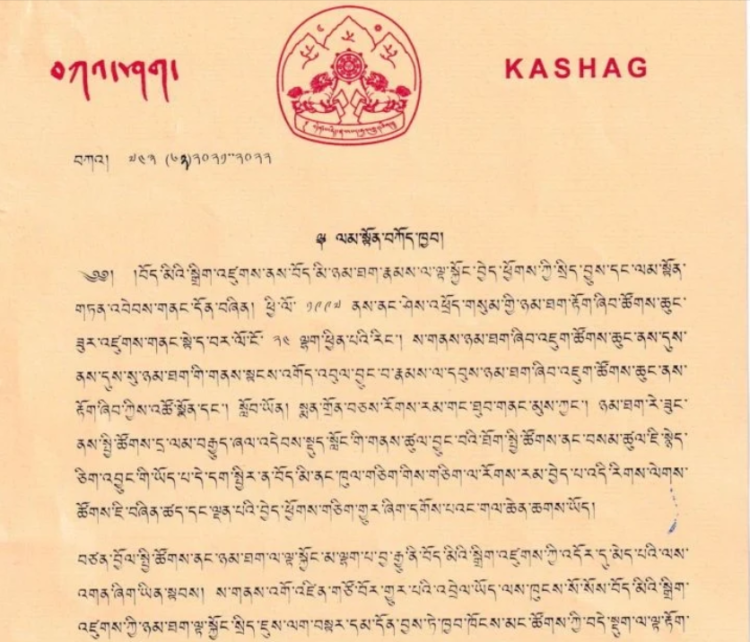 བཀའ་ཤག
KASHAG
བཀའ། ༧༤༢ (༦༢)༢༠༢༡-༢༠༢༢
༄ ལམ་སྟོན་བཀོད་ཁྱབ།
༄༅། །བོད་མིའི་སྒྲིག་འཛུགས་ནས་བོད་མི་ཉམ་ཐག་རྣམས་ལ་ལྟ་སྐྱོང་བྱེད་ཕྱོགས་ཀྱི་སྲིད་བྱུས་དང་ལམ་སྟོན་
གཏན་འབེབས་གནང་དོན་བཞིན། ཕྱི་ལོ་ ༡༩༩༧ ནས་ནང་ཤེས་འཕྲོད་གསུམ་གྱི་ཉམ་ཐག་རྟོག་ཞིབ་ཚོགས་ཆུང་
ཟུར་འཛུགས་གནང་སྟེ་ད་བར་ལོ་ངོ་ ༢༤ ལྷག་ཕྱིན་པའི་རིང་། ས་གནས་ཉམ་ཐག་ཞིབ་འཇུག་ཚོགས་ཆུང་ནས་དུས་
ནས་དུས་སུ་ཉམ་ཐག་གི་གནས་སྟངས་འགོད་འབུལ་བྱུང་བ་རྣམས་ལ་དབུས་ཉམ་ཐག་ཞིབ་འཇུག་ཚོགས་ཆུང་ནས་
རྟོག་ཞིབ་ཀྱིས་འཚོ་སྣོན་དང་། སློབ་ཡོན། སྨན་གྲོན་བཅས་རོགས་རམ་གང་ཐུབ་གནང་མུས་ཀྱང་། ཉམ་ཐག་རེ་ཟུང་
ནས་སྤྱི་ཚོགས་དྲ་ལམ་བརྒྱུད་ཞལ་འདེབས་སྡུད་སློང་གི་གནས་ཚུལ་བྱུང་བའི་ཐོག་སྤྱི་ཚོགས་ནང་བསམ་ཚུལ་ཇི་སྙེད་
ཅིག་འབྱུང་གི་ཡོད་པ་དེ་དག་སྤྱིར་ན་བོད་མི་ནང་ཁུལ་གཅིག་གིས་གཅིག་ལ་རོགས་རམ་བྱེད་པ་འདི་རིགས་ལེགས་
ཚོགས་ཇི་བཞིན་ཚད་དང་ལྡན་པའི་བྱེད་ཕྱོགས་གཅིག་གྱུར་ཞིག་དགོས་པའང་གལ་ཆེན་ཆགས་ཡོད།
བཙན་བྱོལ་སྤྱི་ཚོགས་ནང་ཉམ་ཐག་ལ་ལྟ་སྐྱོང་མ་ལྷག་པ་བྱ་རྒྱུ་ནི་བོད་མིའི་སྒྲིག་འཛུགས་ཀྱི་འདོར་དུ་མེད་པའི་ལས་
འགན་ཞིག་ཡིན་སྟབས། ས་གནས་འགོ་འཛིན་གཙོ་བོར་གྱུར་པའི་འབྲེལ་ཡོད་ལས་ཁུངས་སོ་སོས་བོད་མིའི་སྒྲིག་
འཛུགས་ཀྱི་ཉམ་ཐག་ལྟ་སྐྱོང་སྲིད་ཇུས་ལག་བསྟར་དམ་དོན་བྱས་ཏེ་ཁྱབ་ཁོངས་མང་ཚོགས་ཀྱི་བདེ་སྡུག་ལ་ལྟ་རྟོག་